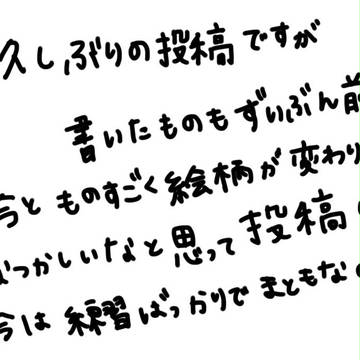 久しぶりの投稿ですが
書いたものもずいぶん前
今とものすごく絵柄が変わり
ずかしいなと思って投稿
今は練習ばっかりでまともな